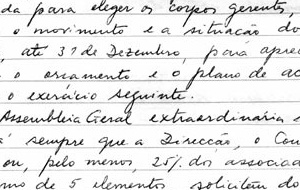 da para eleger os corpos gerentes,
o movimento e a situação do
, até 31 de Dezembro, para apre
o orçamento e o plano de ac
o exercício seguinte.
Assembleia Geral extraordinária s
á sempre que a Direcção, o Con
ou, pelo menos, 25% dos associa
mo de 5 elementos solicitem d